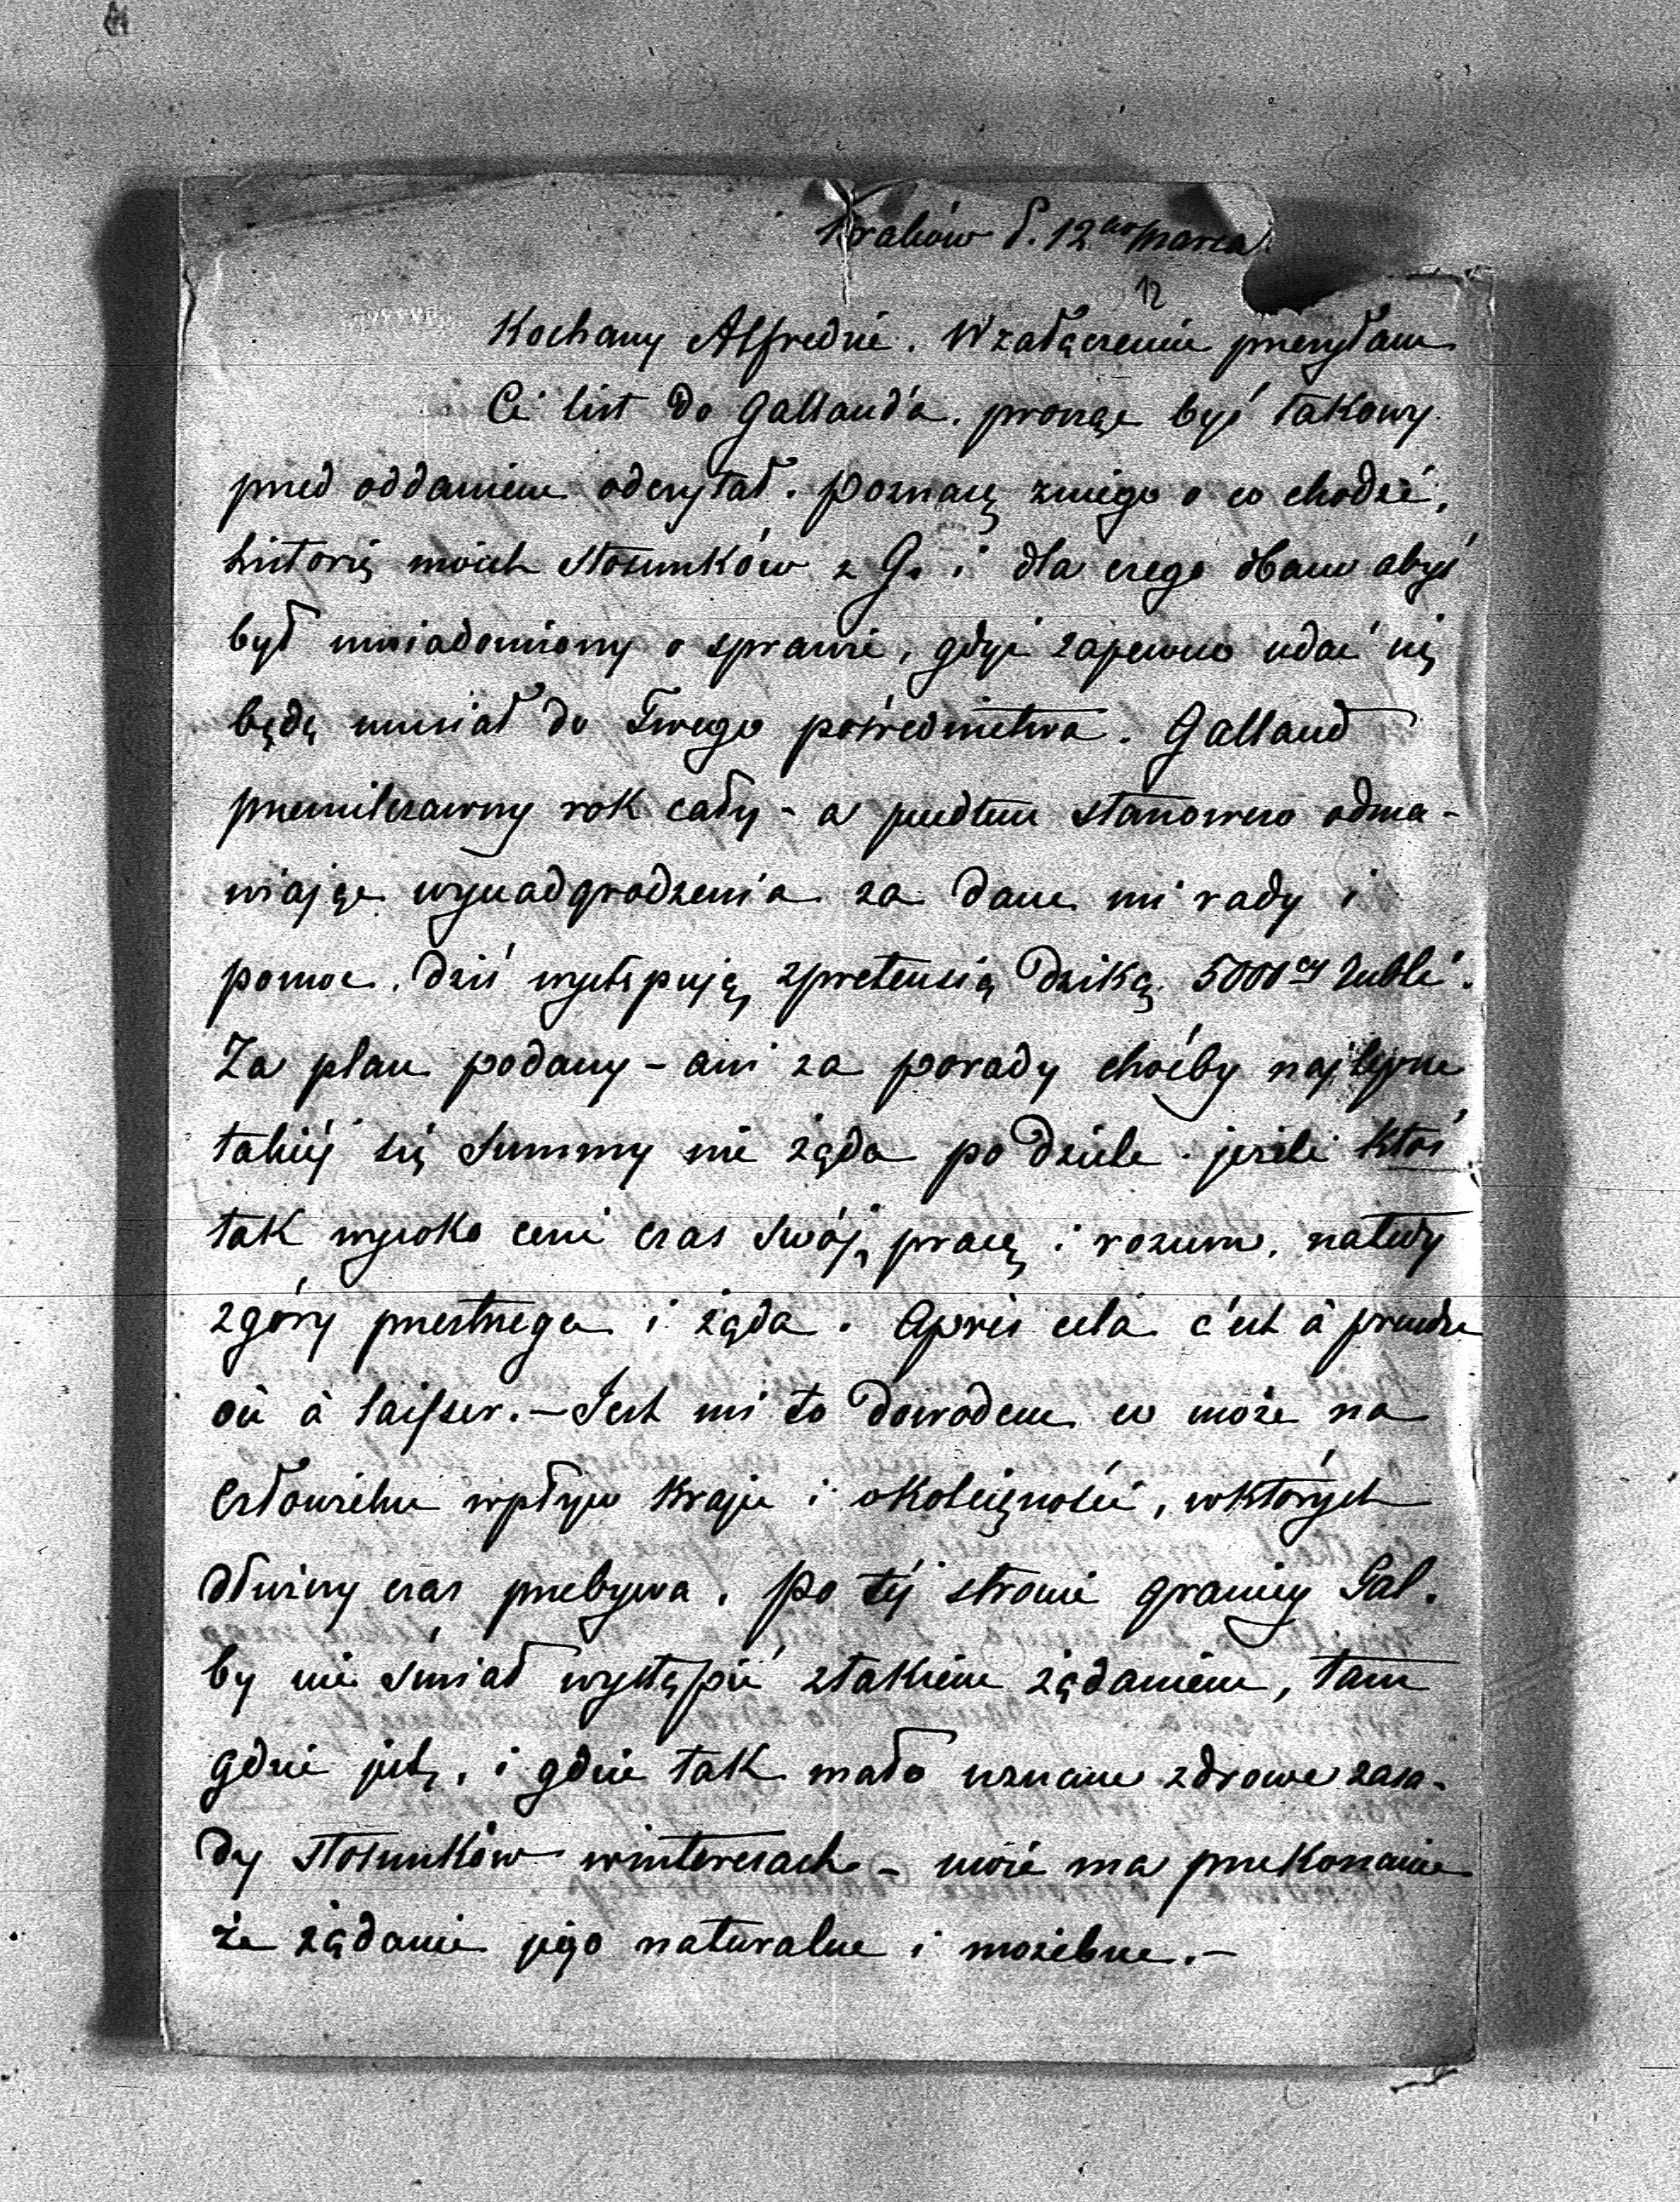 Kraków d. 12go Marca
12
Kochany Alfredzie. W załączeniu przesyłam
Ci list do Galland'a. proszę byś takowy
przed oddaniem odczytał. poznasz z niego o co chodzi,
historię moich stosunków z G. i dla czego dbam abyś
był uwiadomiony o sprawie, gdyż zapewne udać się
będę musiał do Twego pośrednictwa. Galland
przemilczawszy rok cały - a przedtem stanowczo odma-
wiając wynadgrodzenia za dane mi rady i
pomoc. dziś występuje, z pretensią dziką 5000cy rubli.
Za plan podany - ani za porady choćby najlepsze
takiéj się summy nie żąda po dziele. jeżeli ktoś
tak wysoko ceni czas swój, pracę i rozum, należy
z góry przestrzega i żąda. Après cela c'est à prendre
où à laisser. - Jest mi to dowodem co może na
człowieku wpływ kraju i okoliczności, w których
dłuższy czas przebywa. po téj stronie granicy Gal.
by nie śmiał wystąpić z takiem żądaniem, tam
gdzie jest, i gdzie tak mało uznane zdrowe zasa-
dy stosunków w interesach - może ma przekonanie
że żądanie jego naturalne i możebne. -